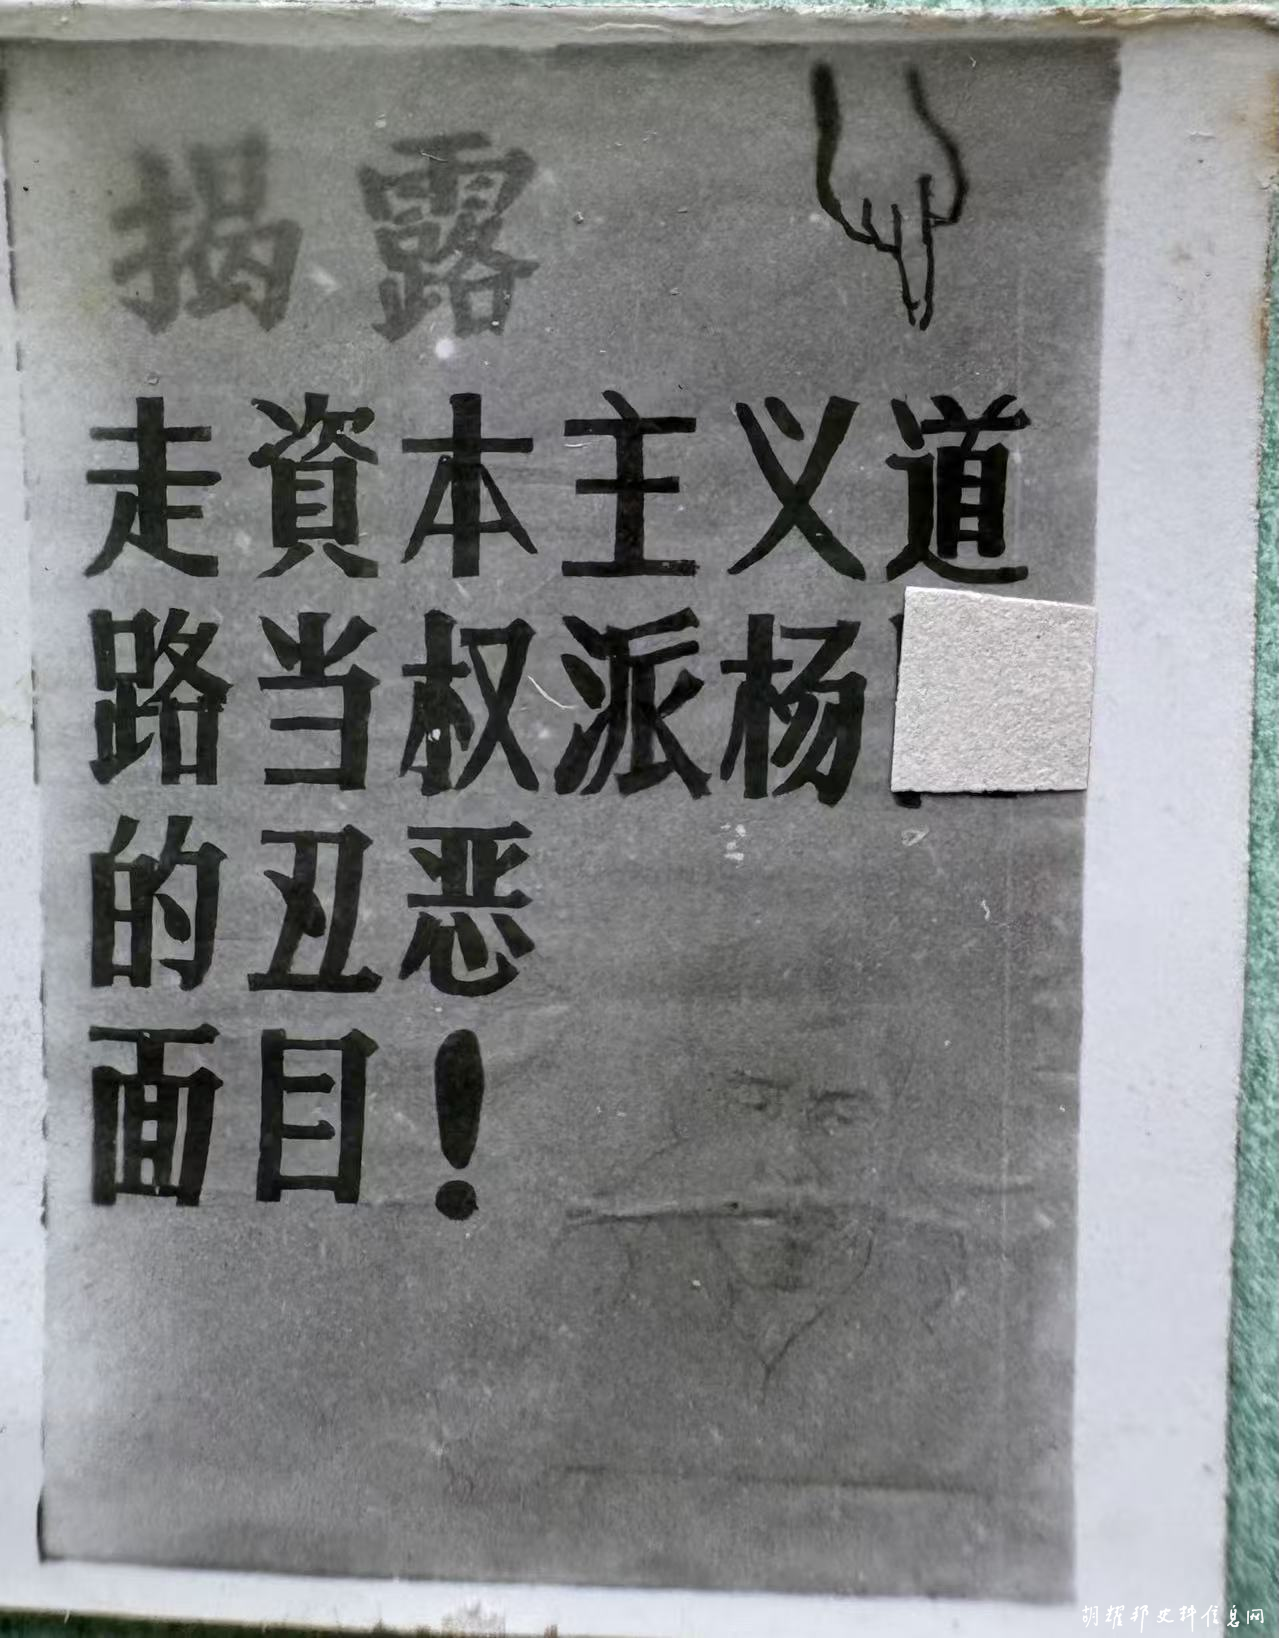 揭露
走資本主义道
路当权派杨
的丑恶
面目！
胡耀邦史料信息网